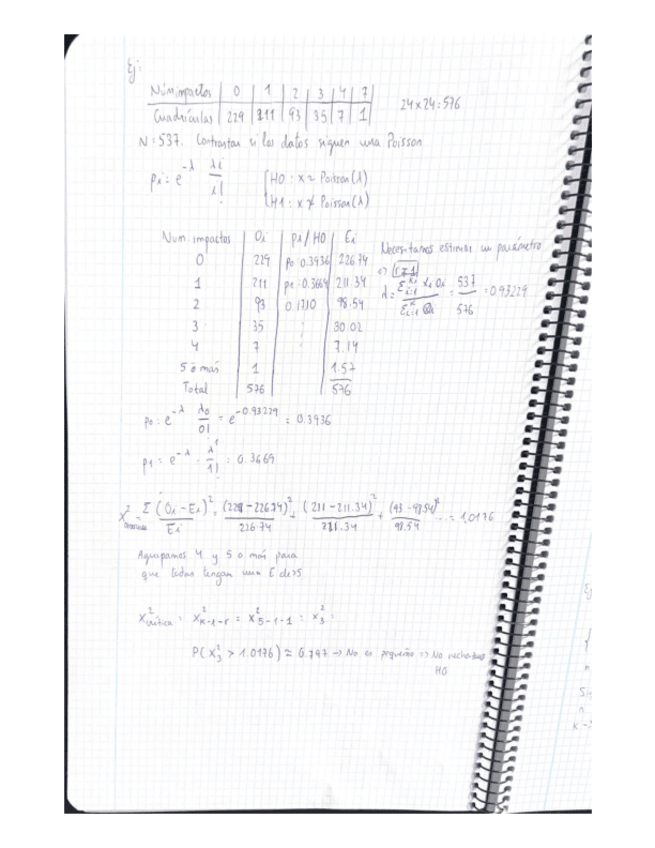 Ej:
Núm impactos | 0 | 1 | 2 | 3 | 4 | 7
Cuadrículas | 229 | 211 | 93 | 35 | 7 | 1
24x24 = 576
N = 537. Contrastar si los datos siguen una Poisson
pi = e^-λ λi/i!
H0: x ≈ Poisson(λ)
H1: x ≠ Poisson(λ)
Num. impactos | Oi | pi/H0 | Ei
0 | 229 | p0 = 0.3936 | 226.74
1 | 211 | p1 = 0.3669 | 211.34
2 | 93 | 0.1710 | 98.54
3 | 35 | : | 30.02
4 | 7 | : | 7.14
5 ó más | 1 | 1.57
Total | 576 | 576
Necesitamos estimar un parámetro
=> r=1
λ = Σ xi Oi / Σ Oi = 537/576 = 0.93229
p0 = e^-λ λ0/0! = e^-0.93229 = 0.3936
p1 = e^-λ · λ^1/1! = 0.3669
Σ (Oi - Ei)^2 / Ei = (229 - 226.74)^2/226.74 + (211 - 211.34)^2/211.34 + (93 - 98.54)^2/98.54 ... = 1.0176
Agrupamos 4 y 5 o más para
que todas tengan una E de >5
X^2 crítica = X^2 k-1-r = X^2 5-1-1 = X^2 3 =
P(X^2 3 > 1.0176) = 0.797 → No es pequeño => No rechazamos
H0